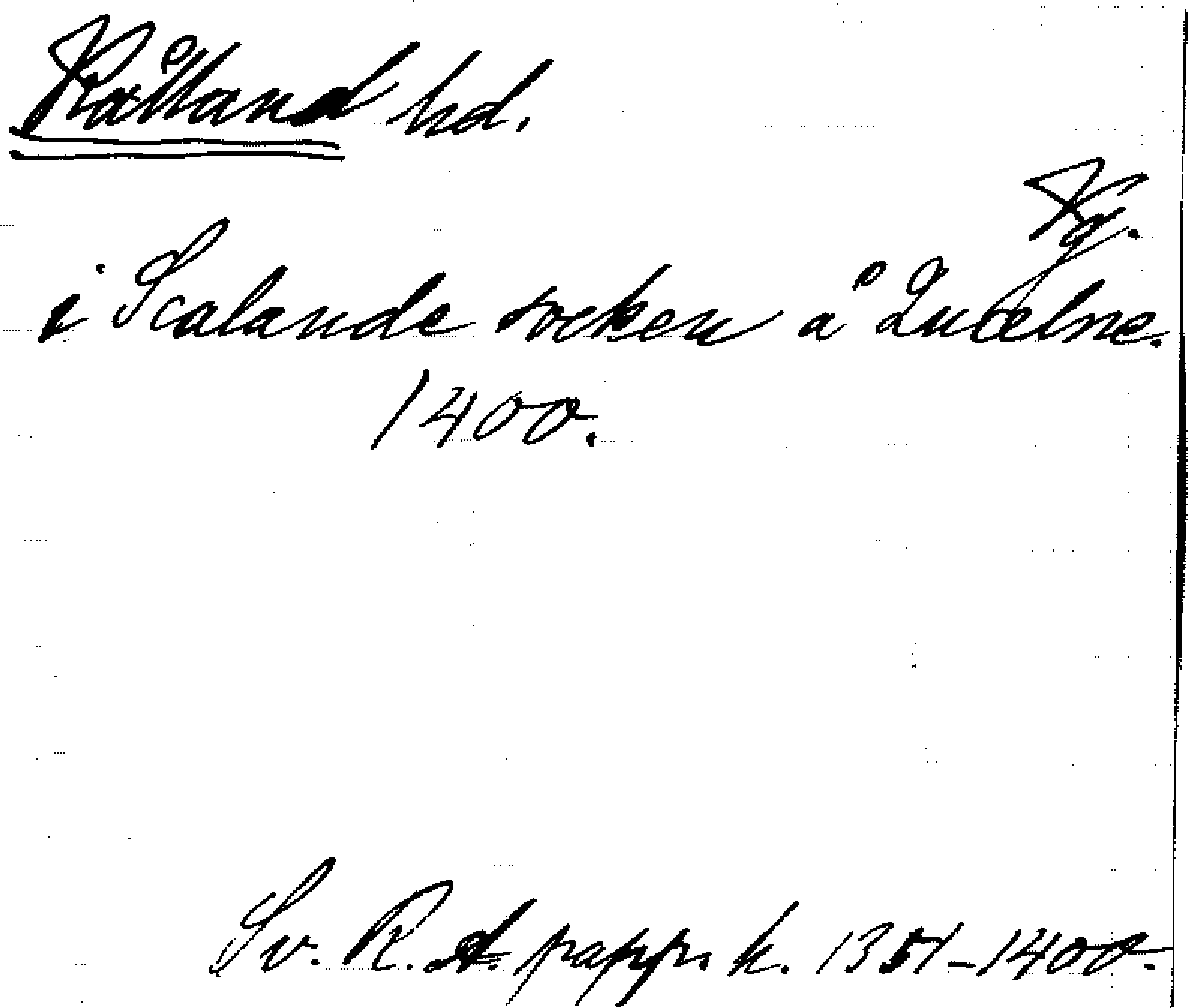 Kålland hd.
Kg.
i Scalande socken å Quælne.
1400.
Sv. R. A. pappr. k. 1351-1400.